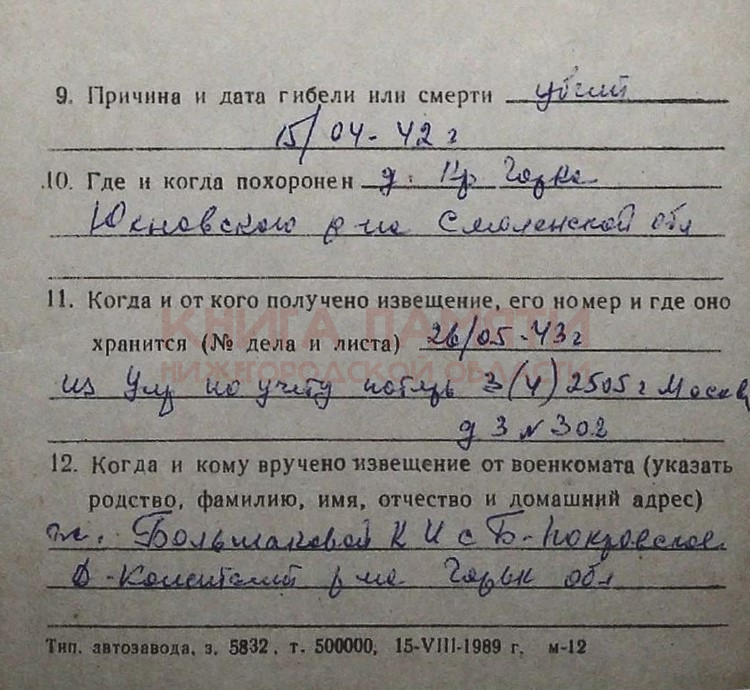 9. Причина и дата гибели или смерти убит
15/04-42 г
10. Где и когда похоронен д. Кр Горка
Юхновского р-на Смоленской обл
11. Когда и от кого получено извещение, его номер и где оно
хранится (№ дела и листа) 26/05-43 г
КНИГА ПАМЯТИ
НИЖЕГОРОДСКОЙ ОБЛАСТИ
из Упр по учету потерь 3(4) 2505 г Москва
д 3 N 302
12. Когда и кому вручено извещение от военкомата (указать
родство, фамилию, имя, отчество и домашний адрес)
ж. Большаковой К И с Б-Покровское
Д-Константин р-на Горьк обл
Тип. автозавода, з. 5832, т. 500000, 15-VIII-1989 г. м-12